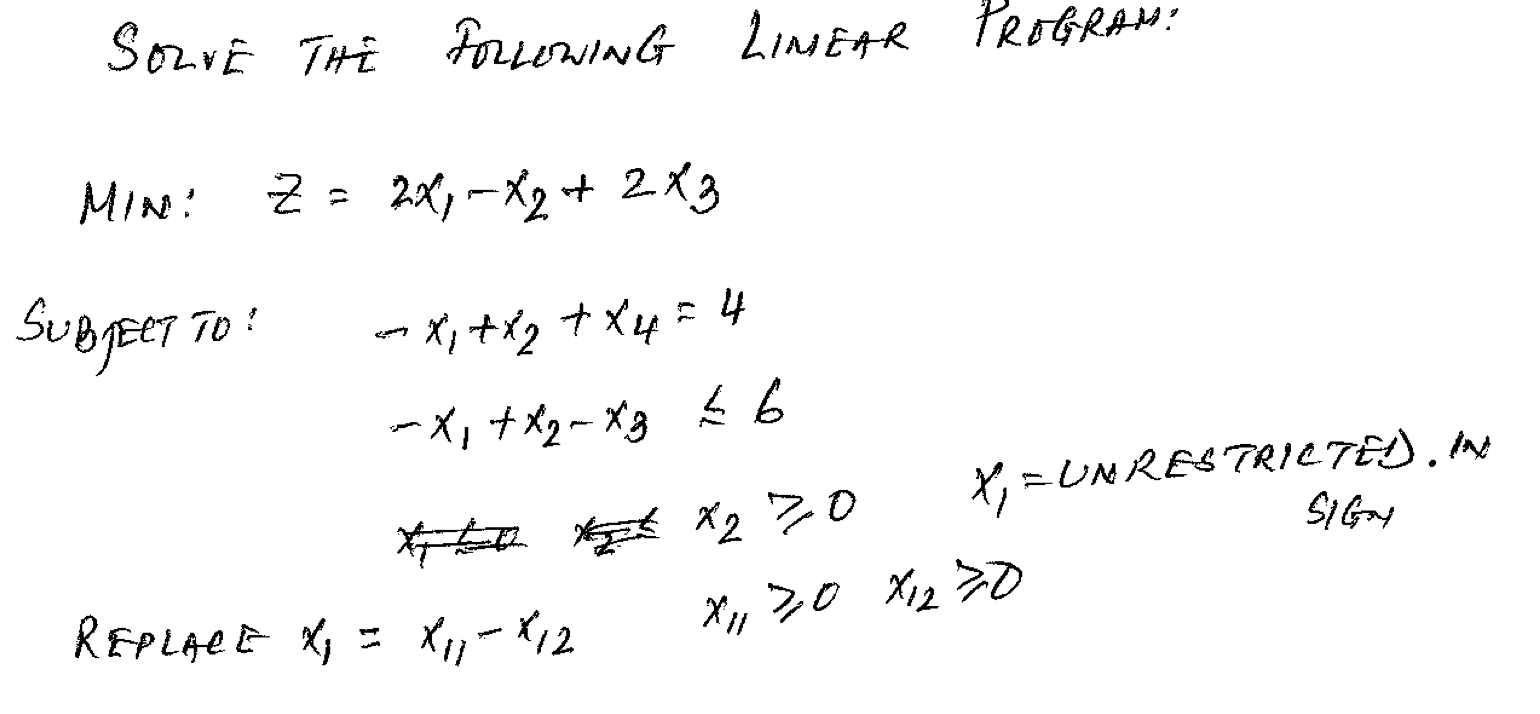 SOLVE THE FOLLOWING LINEAR PROGRAM:
MIN: Z = 2X₁ - X₂ + 2X₃
SUBJECT TO: - X₁ + X₂ + X₄ = 4
- X₁ + X₂ - X₃ ≤ 6
X₂ ≥ 0 X₁ = UNRESTRICTED. IN SIGN
REPLACE X₁ = X₁₁ - X₁₂ X₁₁ ≥ 0 X₁₂ ≥ 0